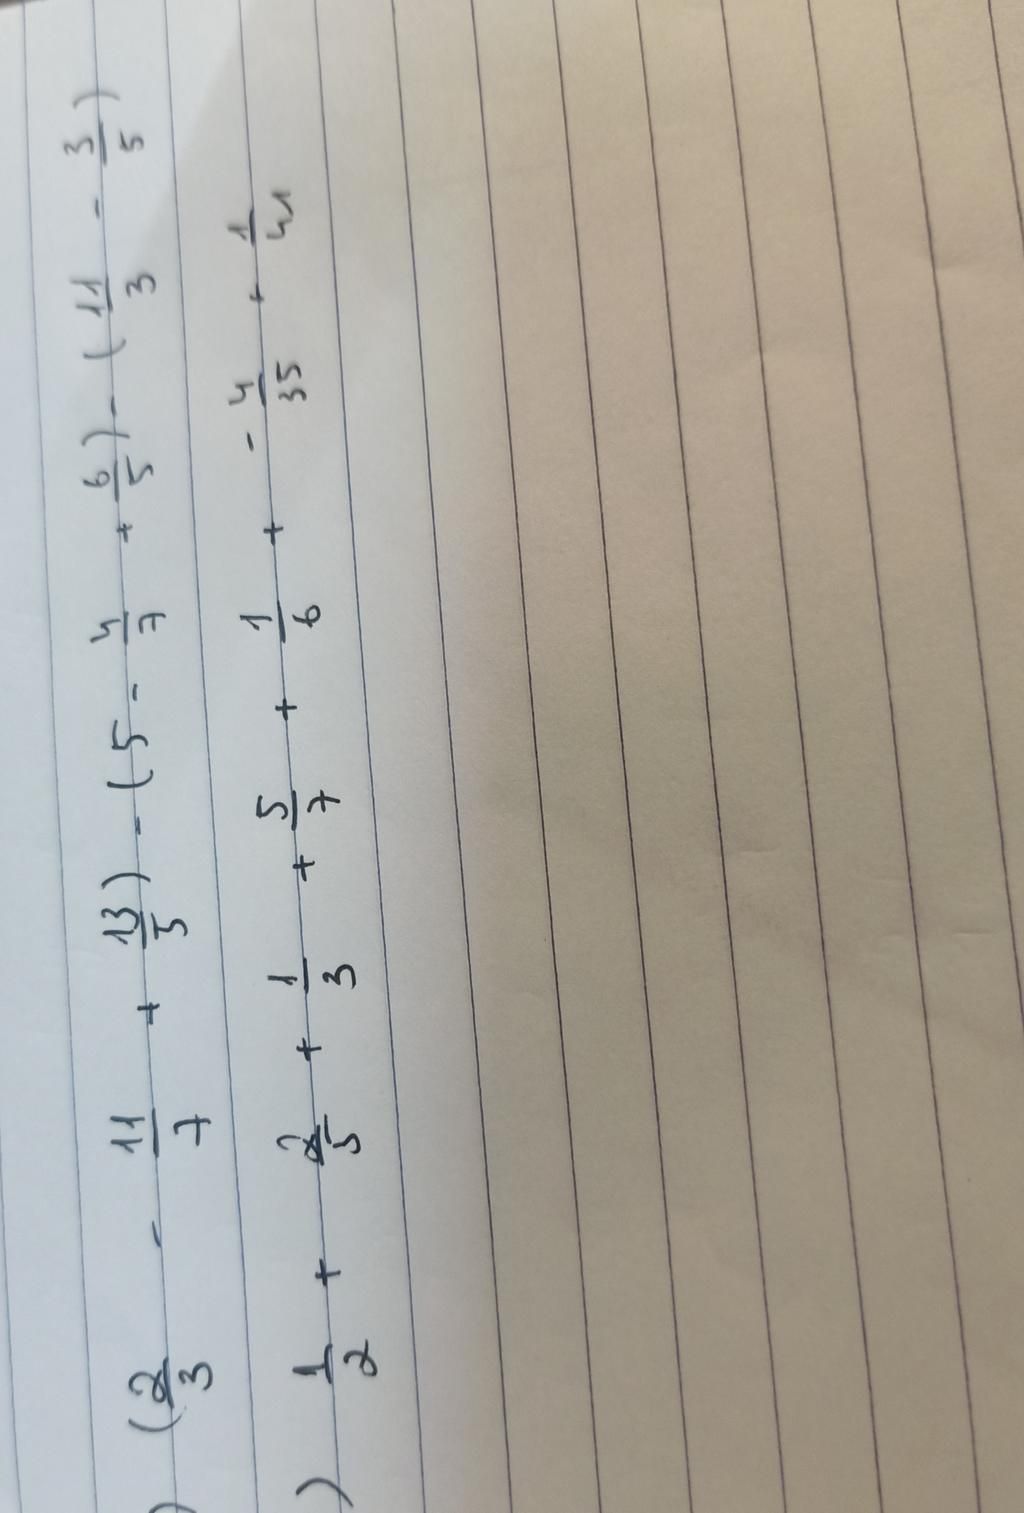 ) (2/3 - 11/7 + 13/5) - (5 - 4/7 + 6/5) - (11/3 - 3/5)
) 1/2 + 2/5 + 1/3 + 5/7 + 1/6 + - 4/35 + 1/41